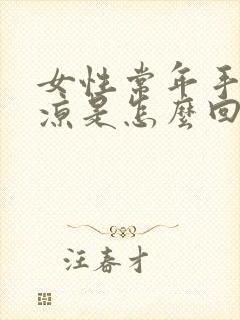 女性常年手
凉是怎麼回
汪春才